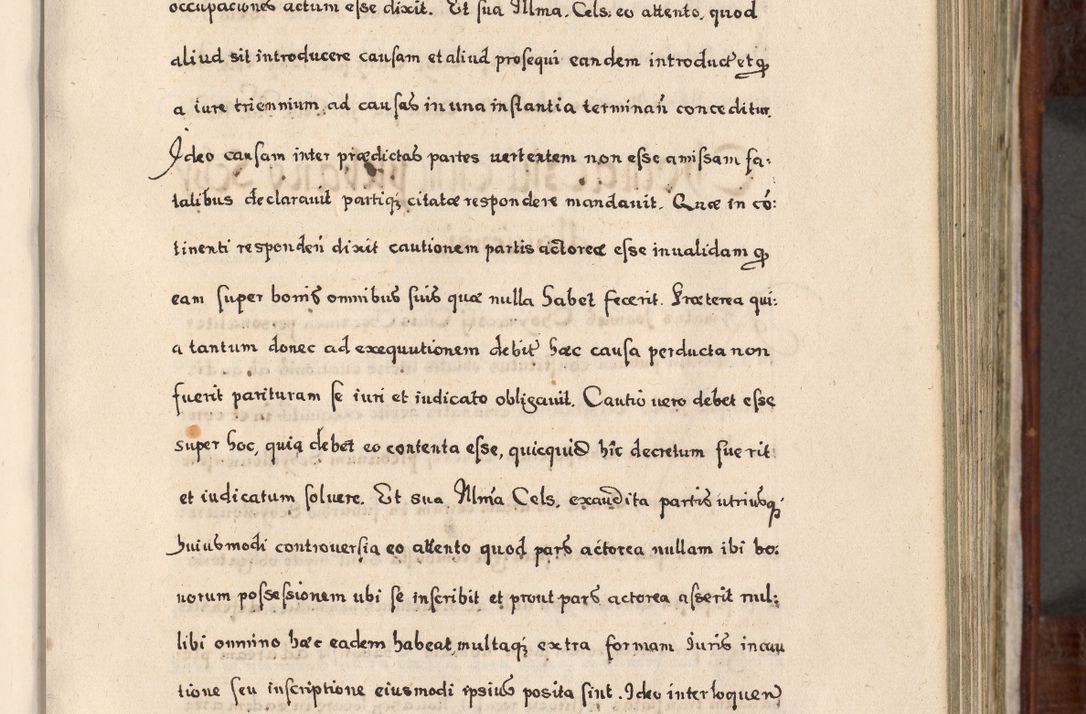 occupationes actum esse dixit. Et sua Illma. Cels. eo attento, quod
aliud sit introducere causam et aliud prosequi eandem introduct' etq
a iure triennium ad causas in una instantia terminan̄ conceditur.
Ideo causam inter prædictas partes uertentem non esse amissam fa:
talibus declarauit partiq; citatæ respondere mandauit. Quæ in cō:
tinenti responden̄ dixit cautionem partis actoreæ esse inualidam q
eam super bonis omnibus suis quæ nulla habet fecerit. Præterea qui:
a tantum donec ad exequutionem debit' hæc causa perducta non
fuerit parituram se iuri et iudicato obligauit. Cautio uero debet esse
super hoc, quia debet eo contenta esse, quicquid hic decretum fuerit
et iudicatum soluere. Et sua Illma Cels. exaudita partis utriusq;
huiusmodi controuersia eo attento quod pars actorea nullam ibi bo:
norum possessionem ubi se inscribit et prout pars actorea asserit nul:
libi omnino hæc eadem habeat, multaq; extra formam Iuris in cau
tione seu inscriptione eiusmodi ipsius posita sint. Ideo interloquen̄